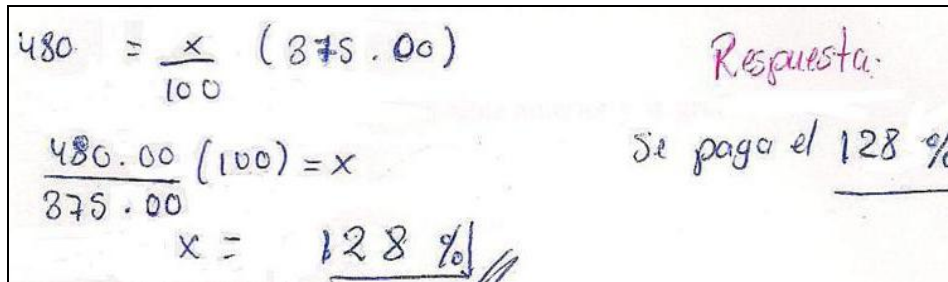 480 = x/100 (375.00)
480.00/375.00 (100) = x
x = 128 %
Respuesta.
Se paga el 128 %